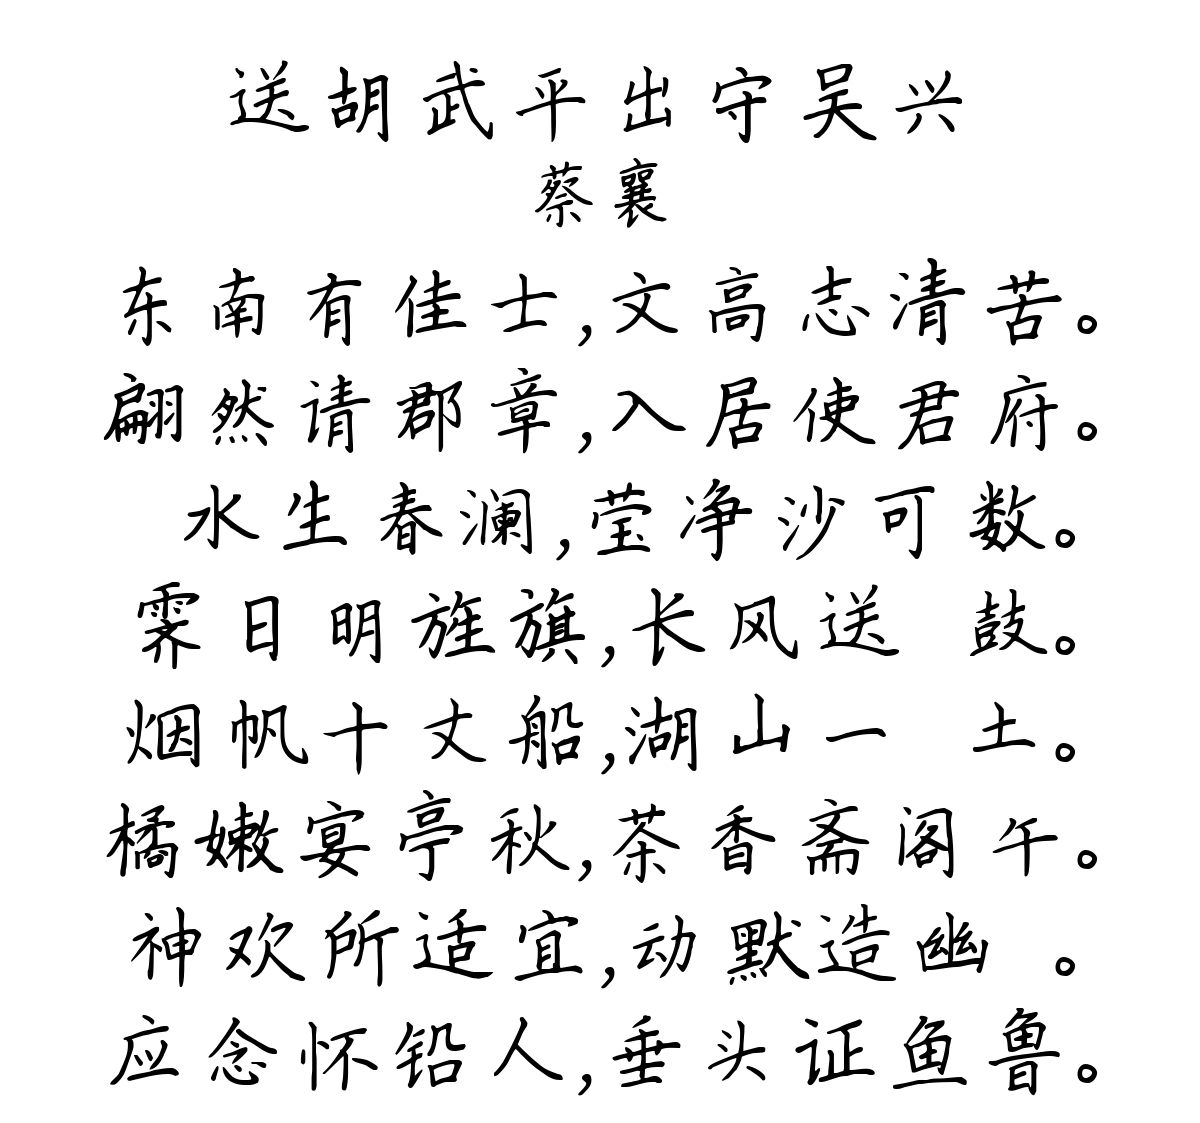 送胡武平出守吴兴
蔡襄
东南有佳士,文高志清苦。
翩然请郡章,入居使君府。
水生春澜,莹净沙可数。
霁日明旌旗,长风送 鼓。
烟帆十丈船,湖山一 土。
橘嫩宴亭秋,茶香斋阁午。
神欢所适宜,动默造幽 。
应念怀铅人,垂头证鱼鲁。